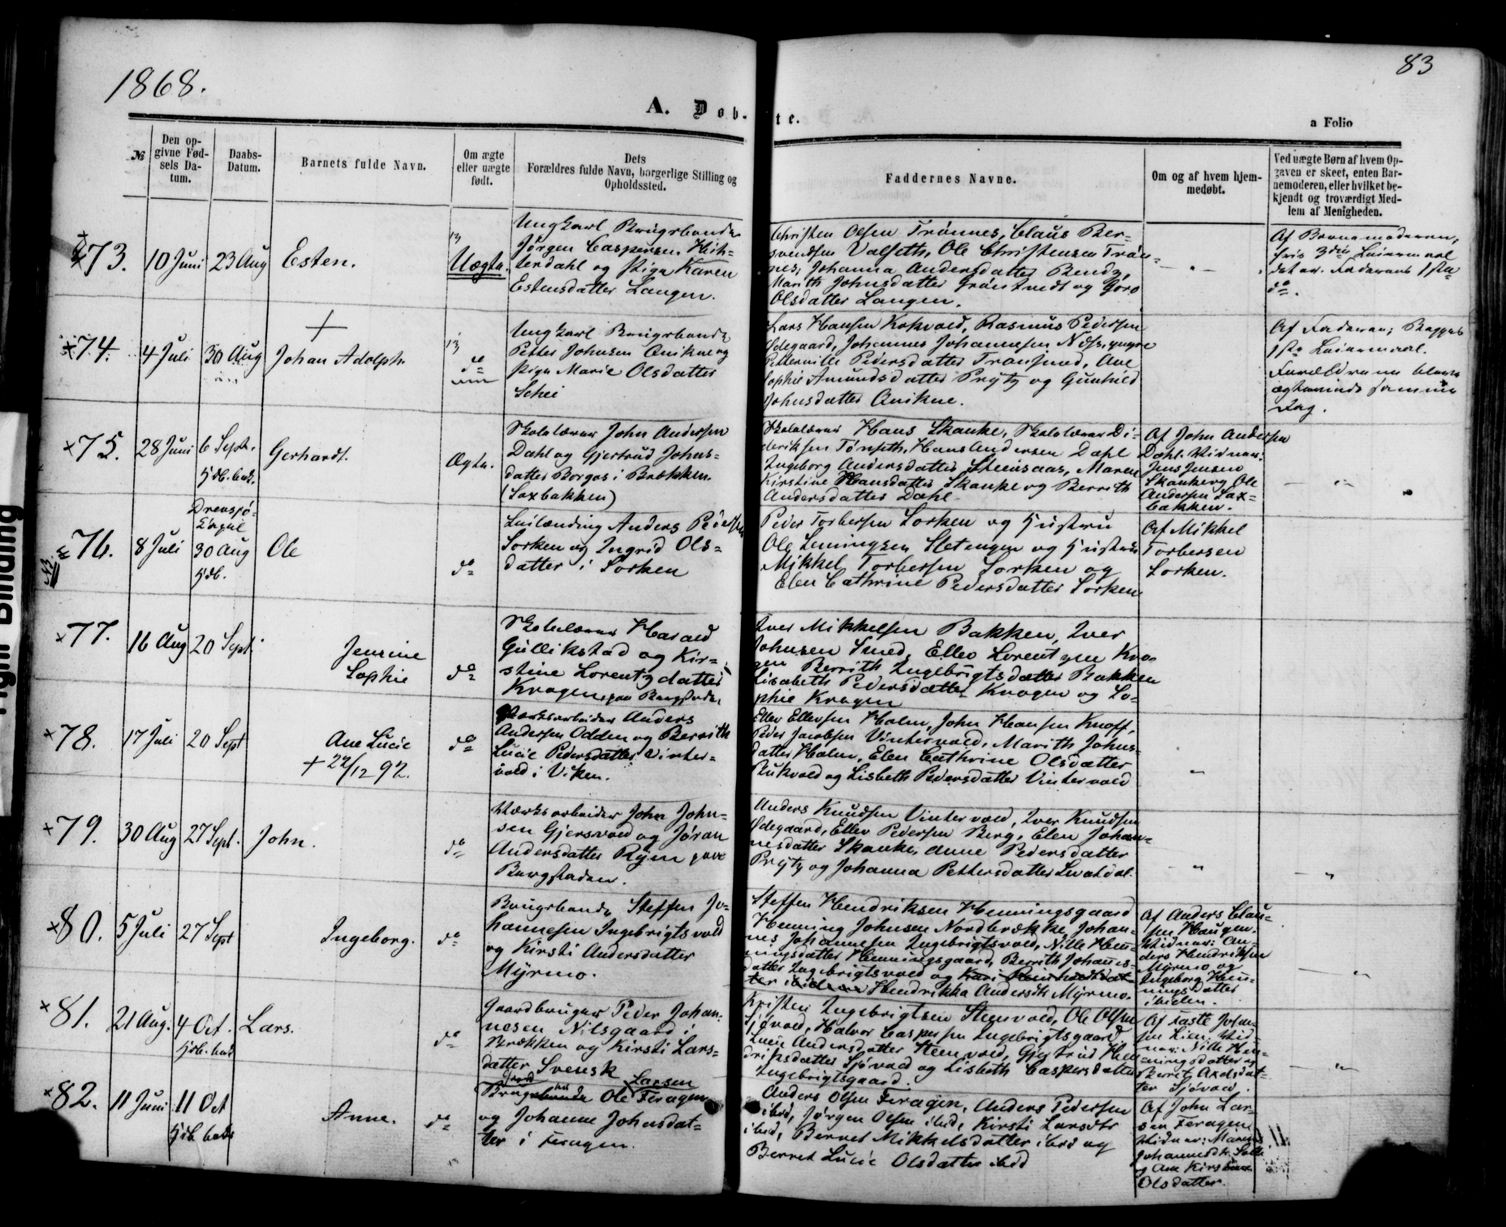 1868.
83
A. Døb-
te.
a Folio
№
Den op-
givne Fød-
sels Da-
tum.
Daabs-
Datum.
Barnets fulde Navn.
Om ægte
eller uægte
født.
Dets
Forældres fulde Navn, borgerlige Stilling og
Opholdssted.
Faddernes Navne.
Om og af hvem hjem-
medøbt.
Ved uægte Børn af hvem Op-
gaven er skeet, enten Bar-
nemoderen, eller hvilket be-
kjendt og troværdigt Med-
lem af Menigheden.
73.
10 Juni
23 Aug
Esten.
Uægte.
Ungkarl Brugsbonde
Jørgen Caspersen Hit-
terdahl og Pige Karen
Estensdatter Langen.
Christen Olsen Trønnes, Claus Ber-
svendsen Valseth, Ole Christensen Trøn-
nes, Johanna Andersdatter
Marith Johnsdatter Grøntvedt og Goro
Olsdatter Langen.
Af Barnemoderen,
74.
4 Juli
30 Aug
Johan Adolph
do
Ungkarl Brugsbonde
Petter Johnsen Anikne og
Pige Marie Olsdatter
Schei
Lars Hansen Kokvold, Rasmus Pedersen
Ødegaard, Johannes Johannesen
Petternille Pedersdatter Transmo, Ane
Sophie Amundsdatter Prytz og Gunhild
Johnsdatter Aunkne.
Af Faderen;
1ste Leiermaal.
Forældrene bleve
ægteviede samme
Dag.
75.
28 Juni
6 Sept.
Hjdb. bek.
Gerhardt.
Ægte.
Skolelærer John Andersen
Dahl og Gjertrud Johns-
datter Borgos i Brækken
(Saxbakken)
Skolelærer Hans Skanke, Skolelærer Di-
derik sen Tønseth, Hans Andersen Dahl
Ingeborg Andersdatter Steensaas, Maren
Kirstine Hansdatter Skanke og Berrith
Andersdatter Dahl
Af John Andersen
Dahl. Vidner:
Jens Jensen
Skanke og Ole
Andersen Sax-
bakken.
76.
8 Juli
Drevsjø-
Capel
30 Aug
Hjdb.
Ole
do
Anders Pedersen
Sorken og Ingrid Ols-
datter i Sorken
Peder Torbersen Sorken og Hustru
Ole Sletengen og Hustru
Mikkel Torbersen Sorken og
Elen Cathrine Pedersdatter Sorken
Af Mikkel
Torbersen
Sorken.
77.
16 Aug
20 Sept
Jensine
Sophie
do
Skolelærer Harald
Gullikstad og Kir-
stine Lorentzdatter
Kragen, paa Bergstaden
Iver Mikkelsen Bakken, Iver
Johnsen Smed, Ellev Lorentzen Kra-
gen Berrith Ingebrigtsdatter Bakken
Lisabeth Pedersdatter Kragen og So-
phie Kragen
78.
17 Juli
20 Sept
Ane Lucie
+ 22/12 92.
do
Værksarbeider Anders
Andersen Odden og Berrith
Lucie Pedersdatter Vinter-
vold i Viken.
Ellev Ellevsen Holm, John Hansen Knoff,
Peder Jacobsen Vintervold, Marith Johns-
datter Holm, Elen Cathrine Olsdatter
Rukvold og Lisbeth Pedersdatter Vintervold
79.
30 Aug
27 Sept.
John.
do
Værksarbeider John John-
sen Gjersvold og Jøran
Andersdatter Ryen paa
Bergstaden.
Anders Knudsen Vintervold, Iver Knudsen
Ødegaard, Ellev Pedersen Berg, Elen Johan-
nesdatter Skanke, Anne Pedersdatter
Prytz og Johanna Pettersdatter
80.
5 Juli
27 Sept
Ingeborg.
do
Brugsbonde Steffen Jo-
hannesen Ingebrigtsvold
og Kirsti Andersdatter
Myrmo.
Steffen Hendriksen Henningsgaard
Henning Johnsen Nordbrække, Johan-
nes Johannesen Ingebrigtsvold, Nille Hen-
ningsdatter Henningsgaard, Berrith Johannes-
datter Ingebrigtsvold og
Hendrikka Andersdt Myrmo.
Af Anders Clau-
sen
Vidner: An-
ders Hendriksen
Myrmo og
Ingeborg Hen-
ningsdatter
ibidem.
81.
21 Aug.
4 Oct.
Hjdb. bek
Lars.
do
Gaardbruger Peder Johan-
nesen Nilsgaard i
Brækken og Kirsti Lars-
datter Svensk
Kristen Ingebrigtsen Stenvold, Ole Olsen
Sjøvold, Halvor Caspersen Ingebrigtsgaard,
Lucie Andersdatter Stenvold, Gjertrud Hen-
driksdatter Sjøvold og Lisbeth Caspersdatter
Ingebrigtsgaard.
Af Faste Johan-
sen Lien; Vid-
ner: Nille Hen-
ningsdatter og
Berret Axelsdat-
ter Sjøvold.
82.
11 Juni
11 Oct
Hjdb. bek
Anne.
do
Larsen
Ole Feragen
og Johanne Johnsdat-
ter i Feragen.
Anders Olsen Feragen, Anders Pedersen
ibid, Jørgen Olsen ibid, Kirsti Larsdtr
ibid, Berret Mikkelsdatter ibid og
Berret Lucie Olsdatter ibid
Af John Lar-
sen Feragen
Vidner: Maren
Johannesdt
og Ane Kirstine
Olsdatter.